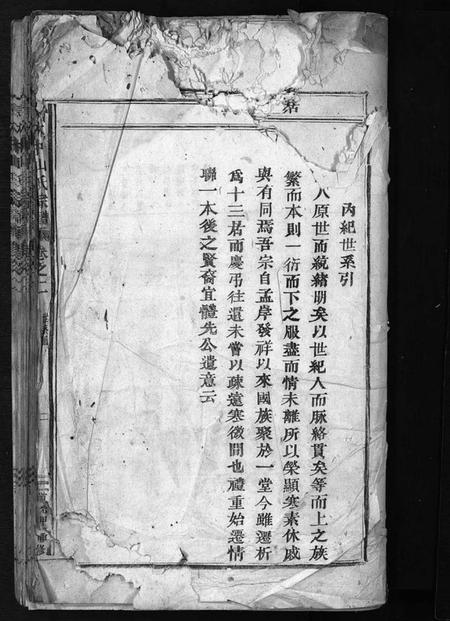 丙紀世系引
人原世而統緒明矣以世紀人而脈絡貫矣等而上之族
繁而本則一衍而下之服盡而情未離所以榮顯寒素休戚
與有同焉吾宗自孟岸發祥以來國族聚於一堂今雖遷析
爲十三居而慶弔往還未嘗以疎遠寒微間也禮重始遷情
聯一本後之賢裔宜體先公遺意云
氏宗譜 卷之二